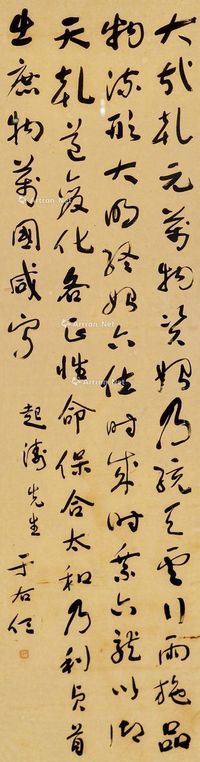 大哉乾元萬物資始乃統天雲行雨施品
物流形大明終始六位時成時乘六龍以御
天乾道變化各正性命保合太和乃利貞首
出庶物萬國咸寧
起濤先生
于右任
Art Ron.Net